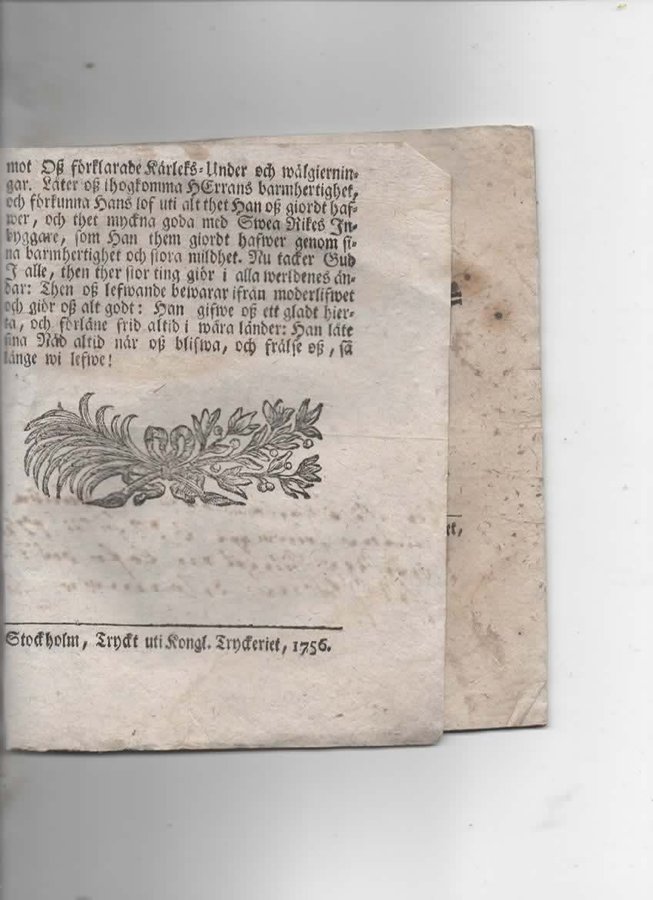 mot Oß förklarade Kärleks-Under och wälgiernin-
gar. Låter oß ihogkomma HErrans barmhertighet,
och förkunna Hans lof uti alt thet Han oß giordt haf-
wer, och thet myckna goda med Swea Rikes In-
byggare, som Han them giordt hafwer genom si-
na barmhertighet och stora mildhet. Nu tacker Gud
I alle, then ther stor ting giör i alla werldenes än-
dar: Then oß lefwande bewarar ifrån moderlifwet
och giör oß alt godt: Han gifwe oß ett gladt hier-
ta, och förläne frid altid i wåra länder: Han låte
sina Nåd altid när oß blifwa, och frälse oß, så
länge wi lefwe!
Stockholm, Tryckt uti Kongl. Tryckeriet, 1756.